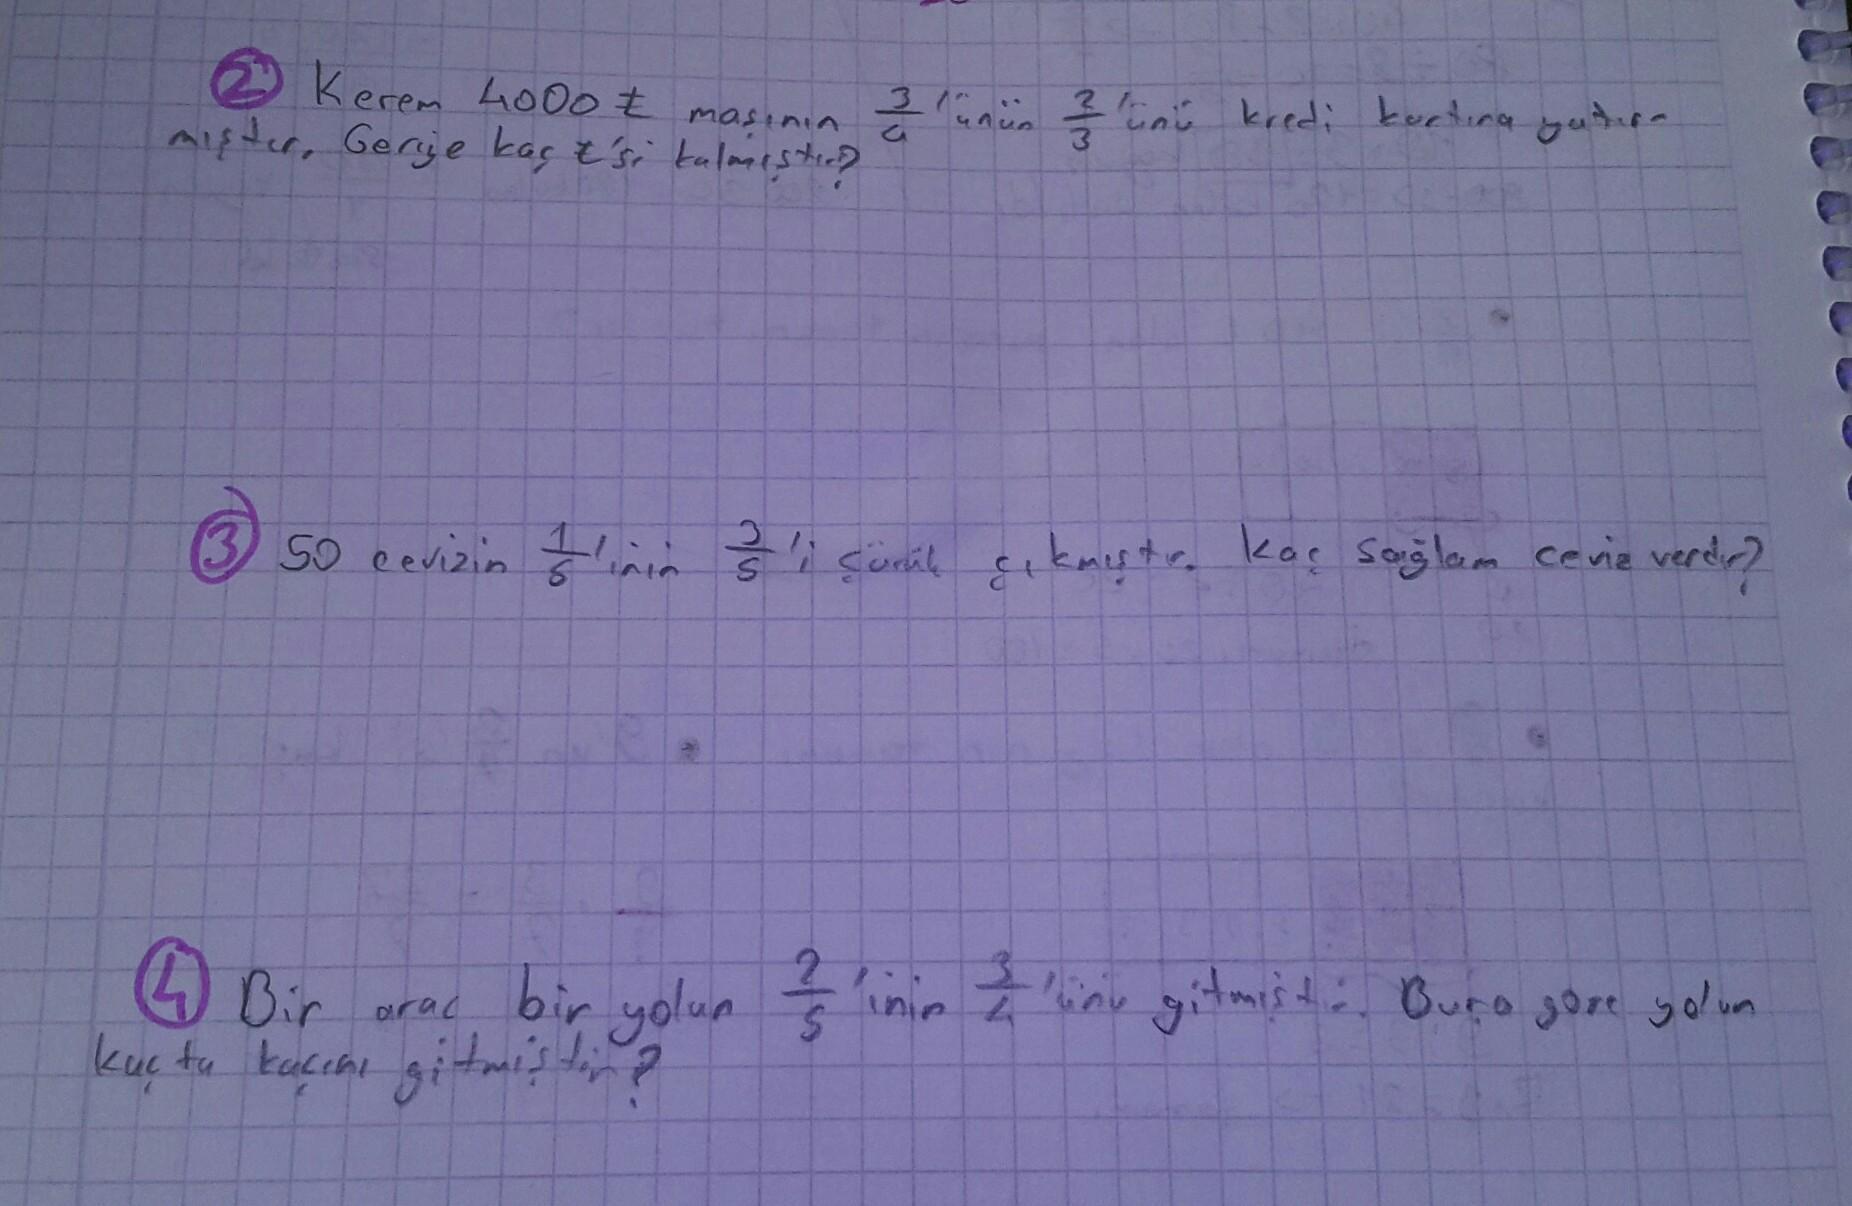 2 Kerem 4000 ₺ maaşının 3/4'ünün 2/3'ünü kredi kartına yatır-
mıştır. Geriye kaç ₺'si kalmıştır?
3 50 cevizin 1/5'inin 3/5'i çürük çıkmıştır. Kaç sağlam ceviz vardır?
4 Bir araç bir yolun 2/5'inin 3/4'ünü gitmiştir. Buna göre yolun
kaçta kaçını gitmiştir?